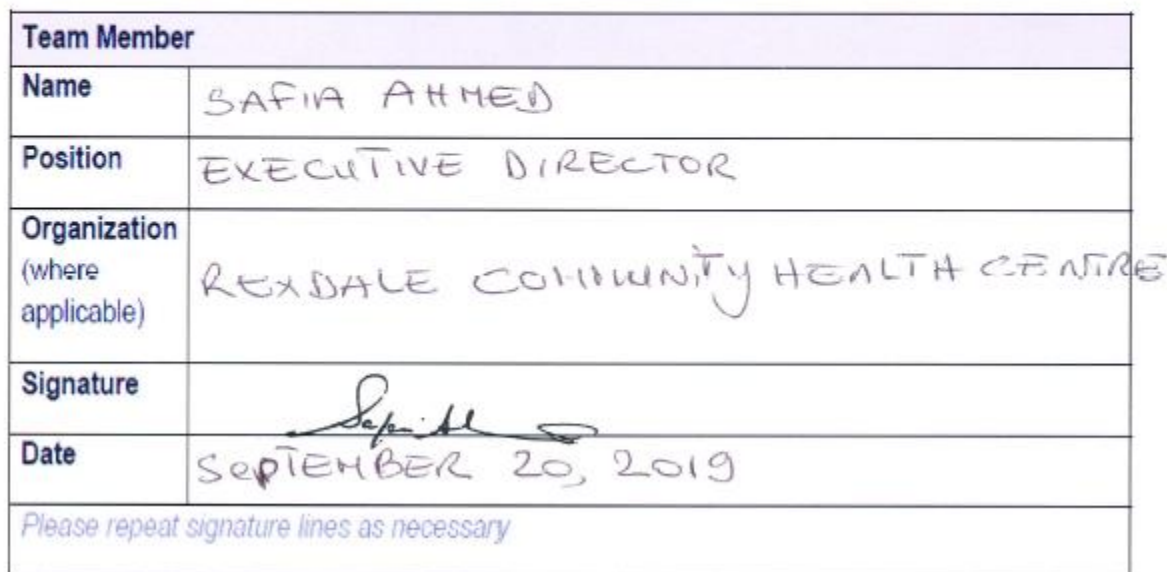 Team Member
Name SAFIA AHMED
Position EXECUTIVE DIRECTOR
Organization
(where
applicable) REXDALE COMMUNITY HEALTH CENTRE
Signature Safia Ah
Date SEPTEMBER 20, 2019
Please repeat signature lines as necessary